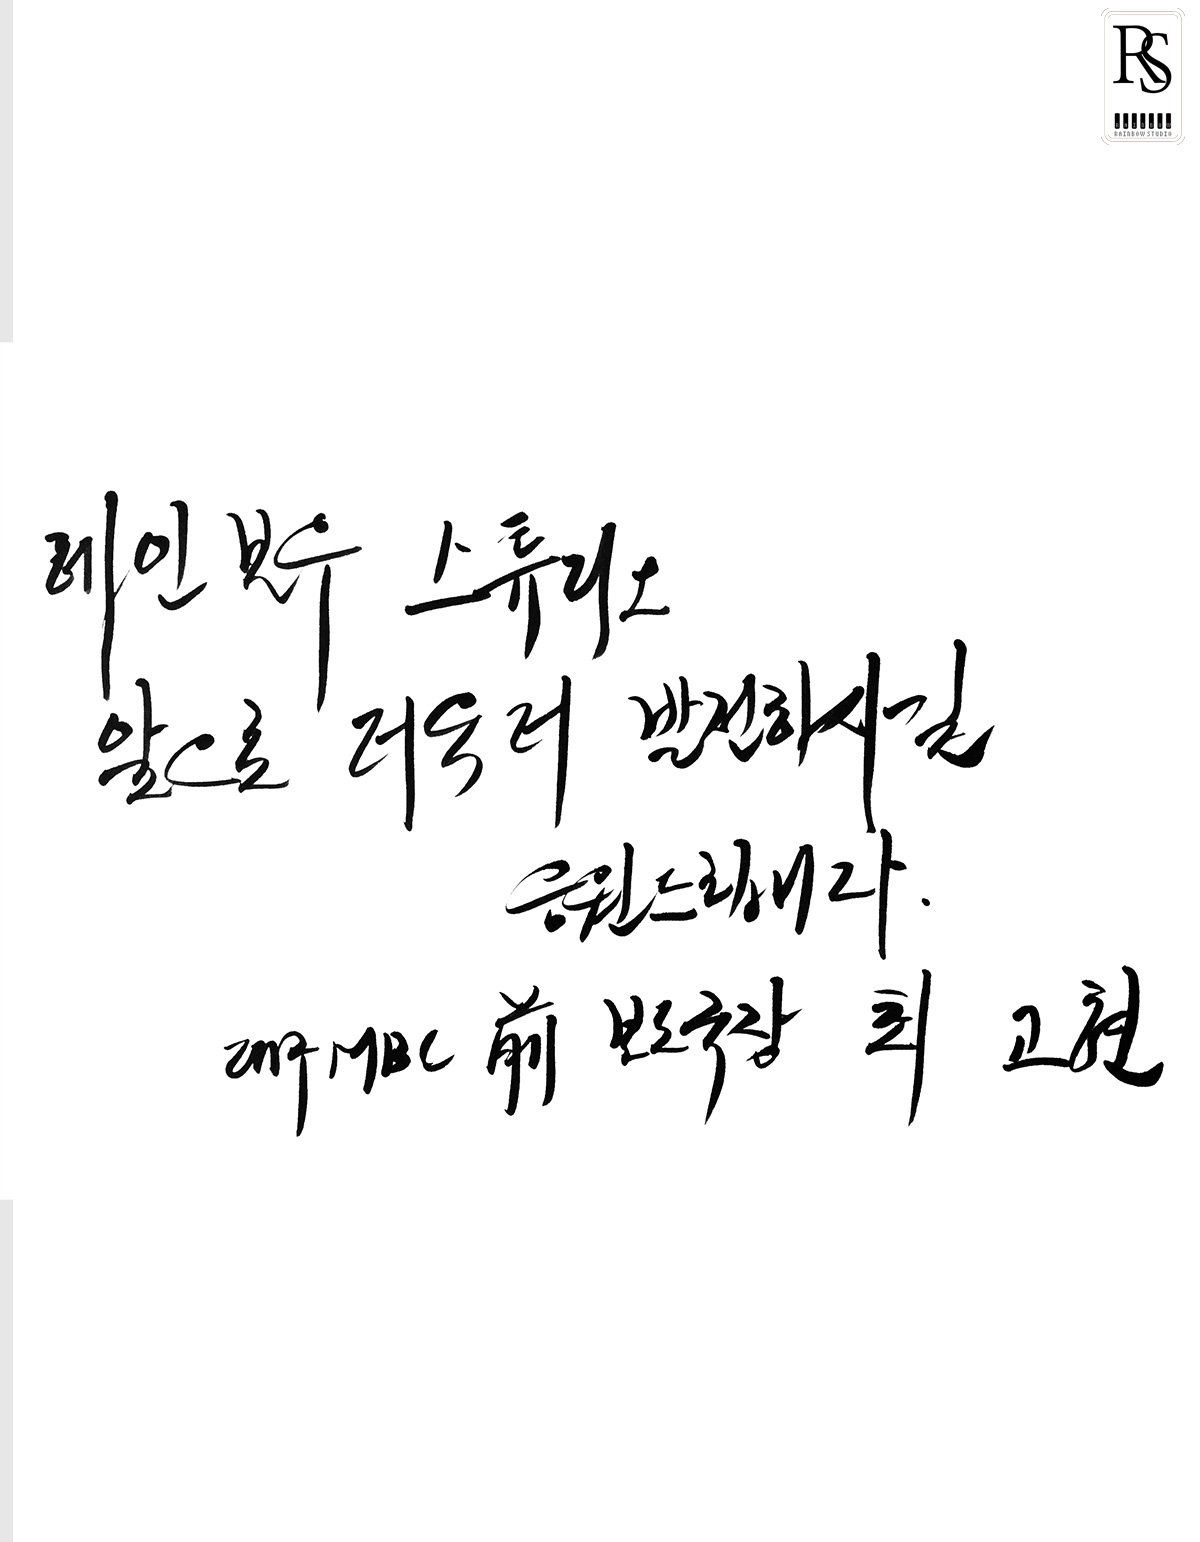 RS
RAINBOW STUDIO
레인보우 스튜디오
앞으로 더욱 더 발전하시길
응원드립니다.
대구MBC 前 보도국장 최 고현